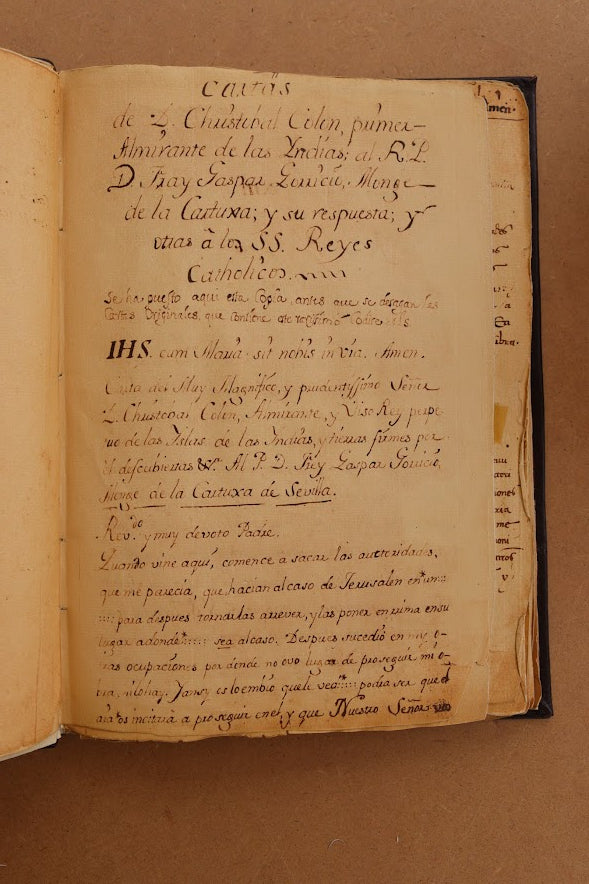 Cartas
de D. Christobal Colon, primer
Almirante de las Yndias; al R. P.
D. Fray Gaspar Gorricio, Monge
de la Cartuxa; y su respuesta; y
otras â los SS. Reyes
Catholicos.
Se ha puesto aqui esta Copia, antes que se
Cartas Originales, que contiene este Codice
IHS. cum Maria sit nobis in via. Amen.
Carta del Muy Magnifico, y prudentissimo Señor
D. Christobal Colon, Almirante, y Viso Rey perpe-
tuo de las Yslas de las Indias, y tierras firmes por
el descubiertas &c. Al P. D. Frey Gaspar Gorricio,
Monge de la Cartuxa de Sevilla.
Rev.do y muy devoto Padre.
Quando vine aquí, comence a sacar las autoridades,
que me parecia, que hacian al caso de Jerusalen
para despues tornarlas a rever, y las poner en rima en su
lugar adonde sea al caso. Despues sucedió en mis o-
tras ocupaciones por donde no ovo lugar de proseguir mi o-
bra, ni lo hay. Y ansy es lo embio que li vea podra ser que el
a incitará a proseguir en el y que Nuestro Señor